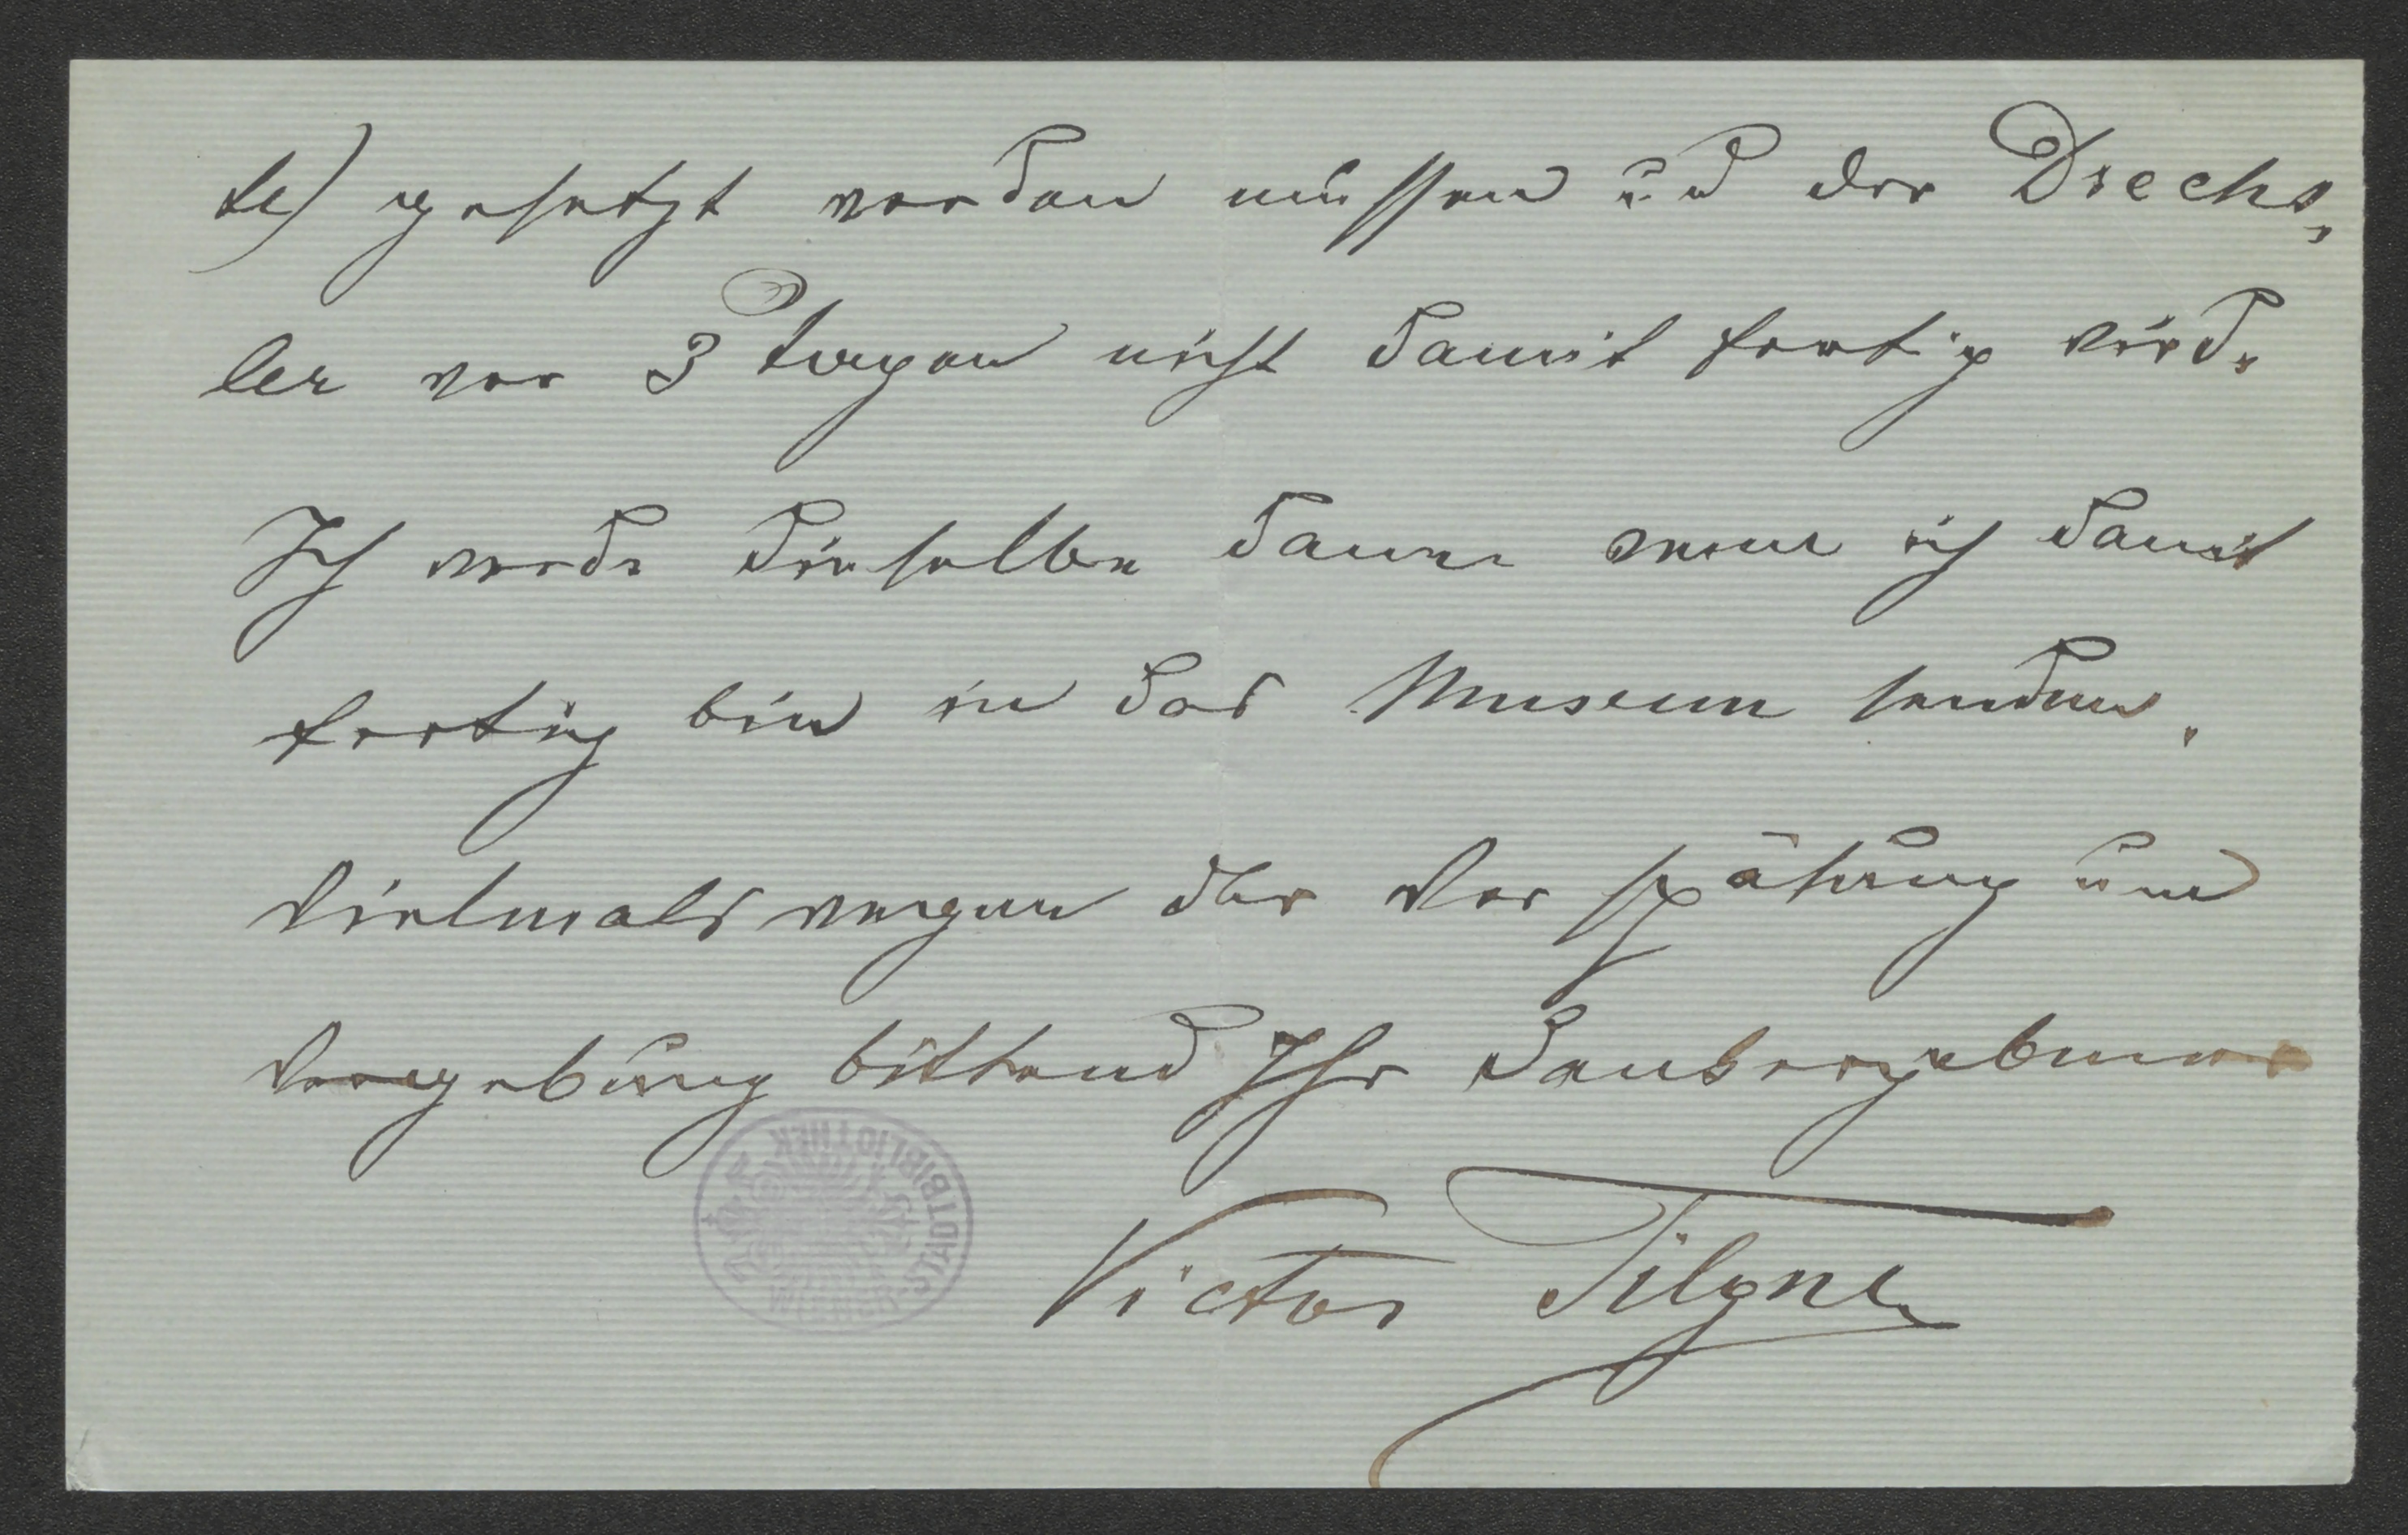 te) gesetzt werden müssen und der Drechs-
ler vor 3 Tagen nicht damit fertig wird.
Ich werde dieselbe dann wenn ich damit
fertig bin in das Museum senden.
Vielmals wegen der Verspätung um
Vergebung bittend Ihr dankergebener
Victor Tilgner
WIENER-STADTBIBLIOTHEK